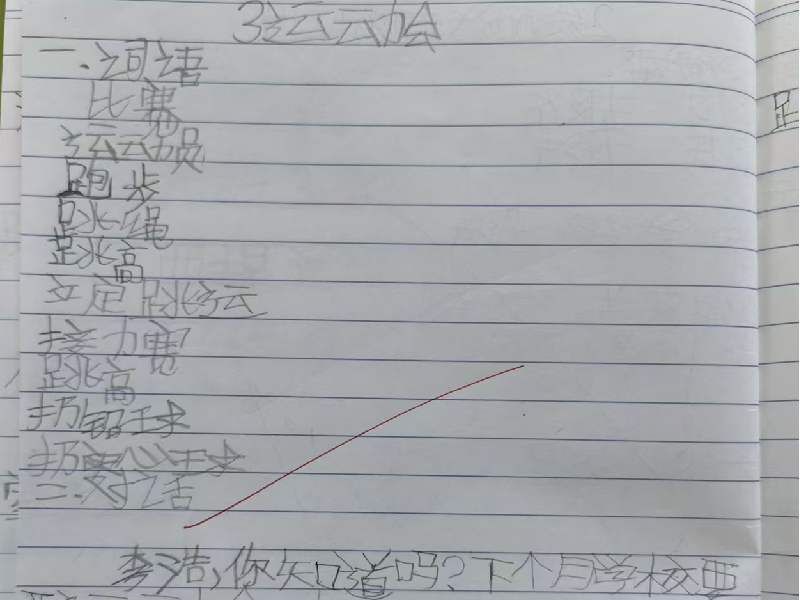 3运动会
一.词语
比赛
运动员
跑步
跳绳
跳高
立定跳远
接力赛
跳高
扔铅球
扔实心球
二.对话
李浩,你知道吗?下个月学校要